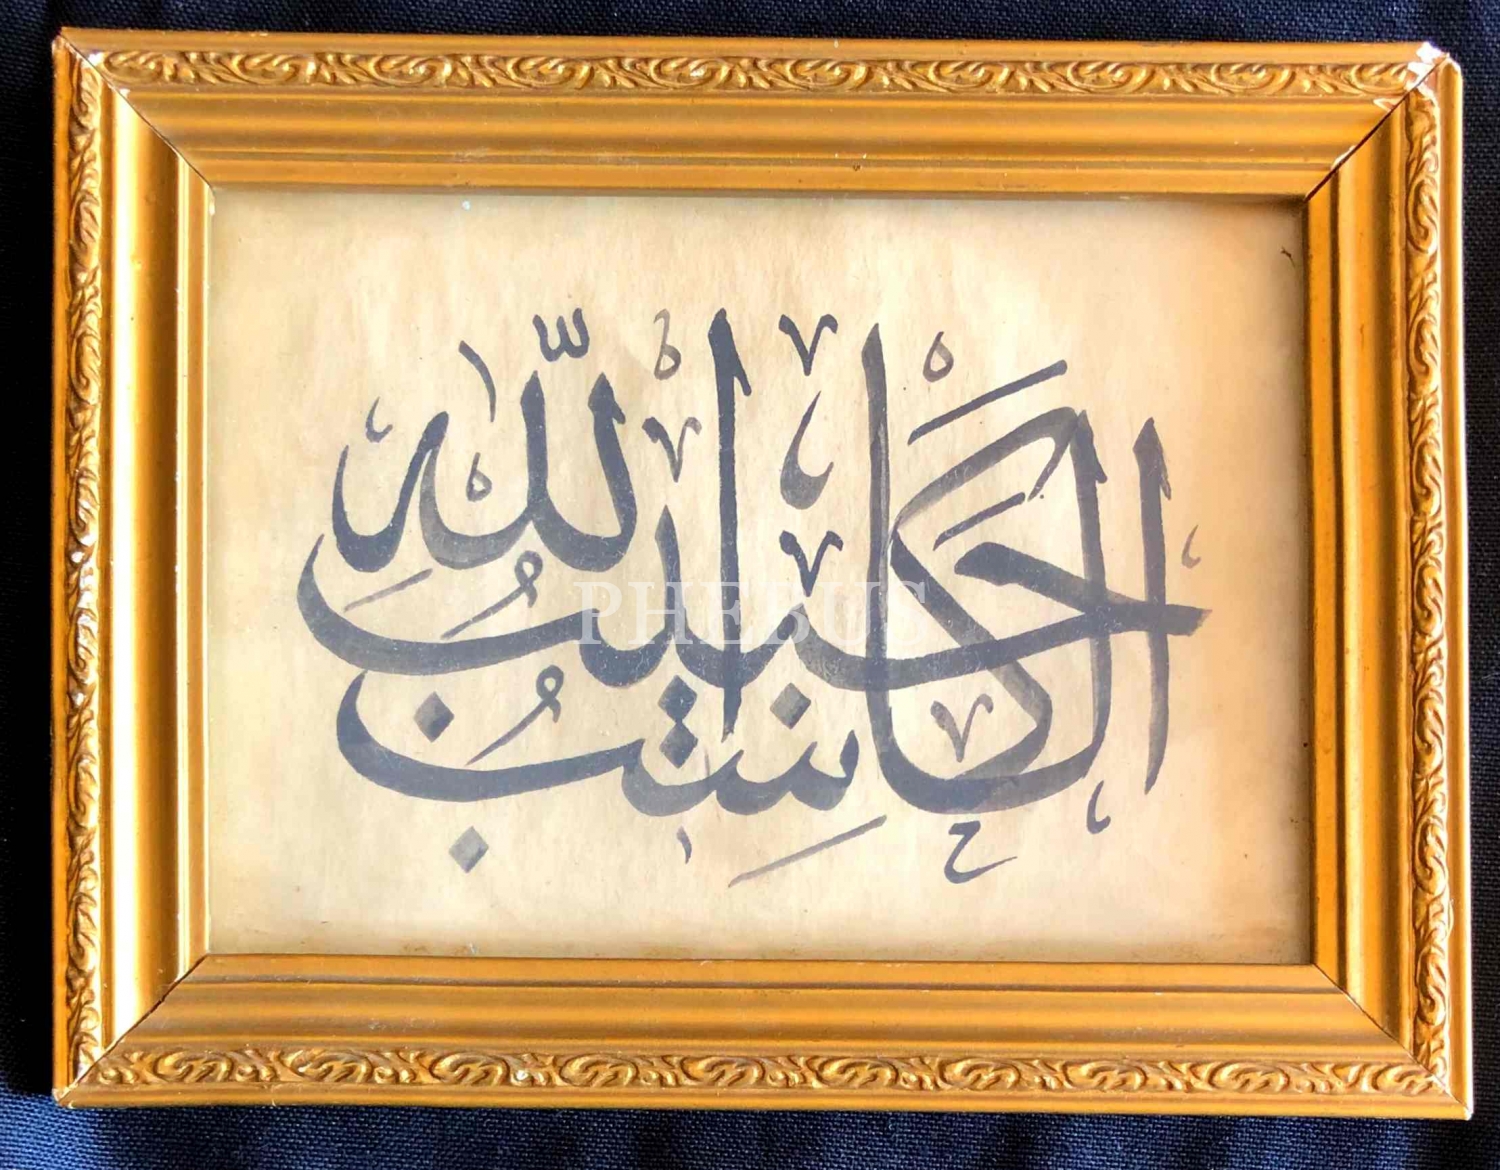 الكاسب حبيب الله
PHEBUS